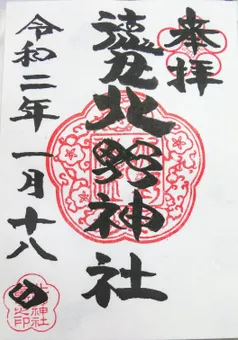 奉拝
遠刕北野神社
令和二年一月十八日
神社
之印